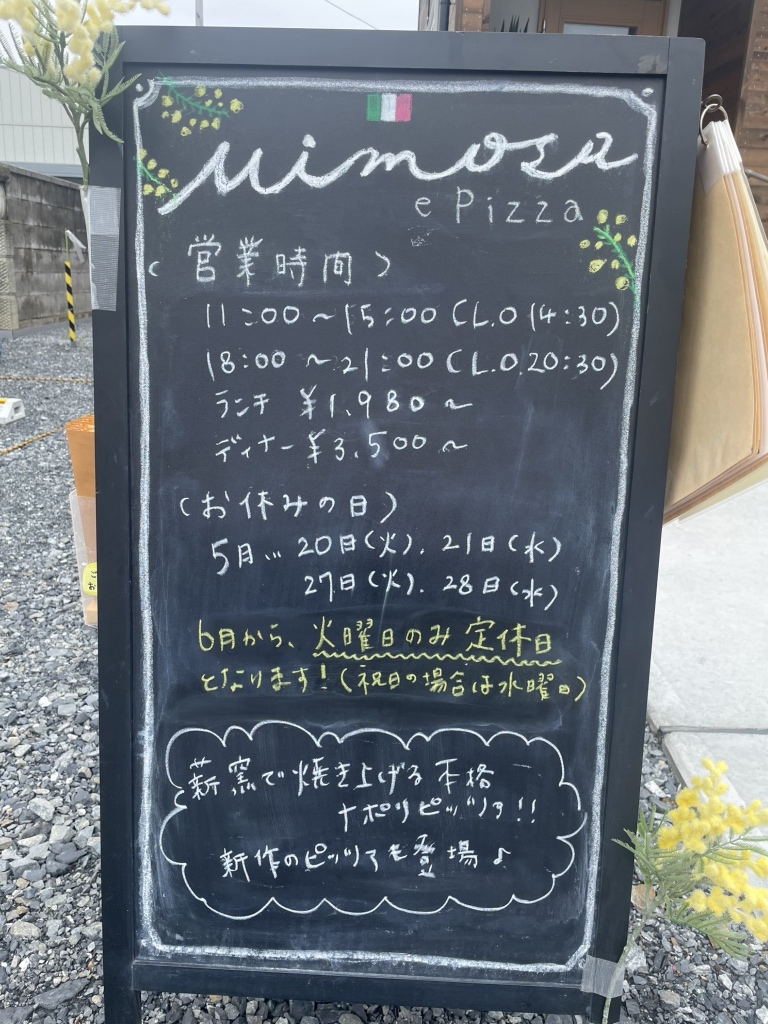 Mimosa
e Pizza
(営業時間)
11:00～15:00(L.O 14:30)
18:00～21:00(L.O.20:30)
ランチ ¥1,980～
ディナー¥3,500～
(お休みの日)
5月… 20日(火). 21日(水)
27日(火). 28日(水)
6月から、火曜日のみ定休日
となります!(祝日の場合は水曜日)
薪窯で焼き上げる本格
ナポリピッツァ!!
新作のピッツァも登場♪